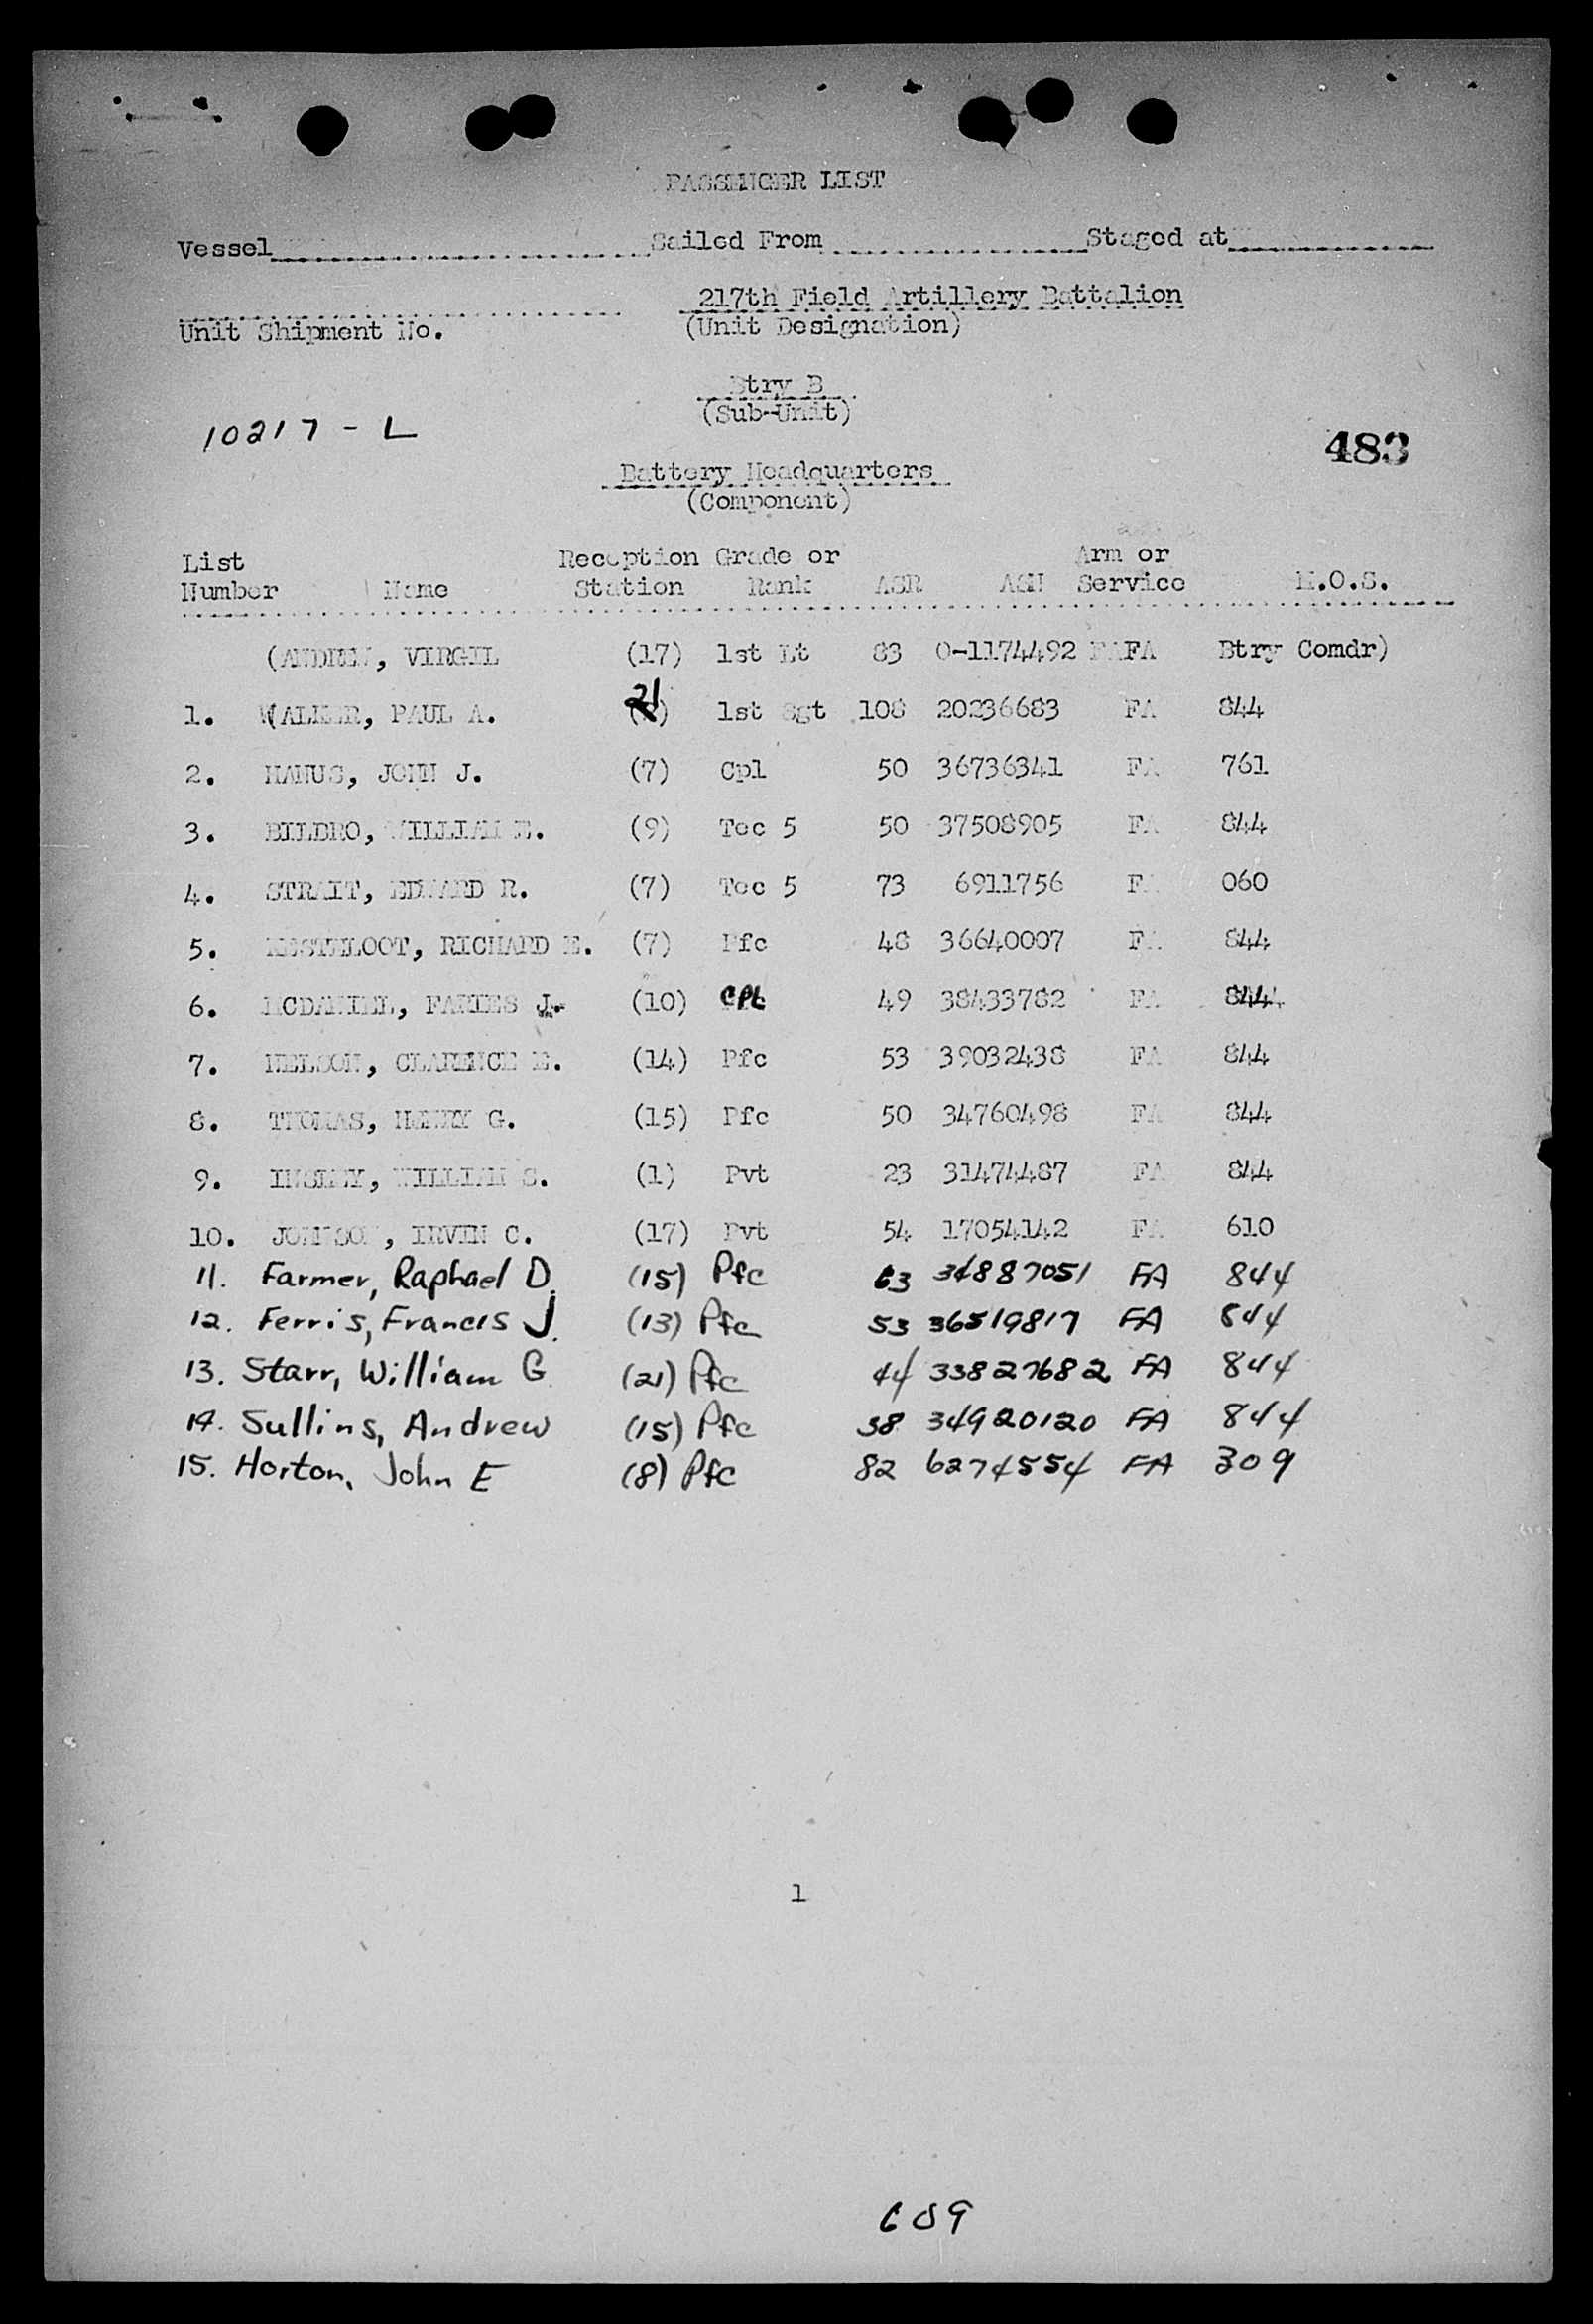 PASSENGER LIST
Vessel Sailed From Staged at
217th Field Artillery Battalion
Unit Shipment No. (Unit Designation)
Btry B
(Sub-Unit)
10217 - L
483
Battery Headquarters
(Component)
List Reception Grade or Arm or
Number Name Station Rank ASR ASN Service M.O.S.
(ANDREW, VIRGIL (17) 1st Lt 83 O-1174492 FA Btry Comdr)
1. WALKER, PAUL A. 21 1st Sgt 108 20236683 FA 844
2. MANUS, JOHN J. (7) Cpl 50 36736341 FA 761
3. BILBRO, WILLIAM E. (9) Tec 5 50 37508905 FA 844
4. STRAIT, EDWARD R. (7) Tec 5 73 6911756 FA 060
5. RICHARD E. (7) Pfc 48 36640007 FA 844
6. MCDANIEL, J. (10) Cpl 49 38433782 FA 844
7. NELSON, CLARENCE E. (14) Pfc 53 39032438 FA 844
8. THOMAS, HENRY G. (15) Pfc 50 34760498 FA 844
9. WILLIAM S. (1) Pvt 23 31474487 FA 844
10. JOHNSON, IRVIN C. (17) Pvt 54 17054142 FA 610
11. Farmer, Raphael D. (15) Pfc 63 34887051 FA 844
12. Ferris, Francis J. (13) Pfc 53 36519817 FA 844
13. Starr, William G (21) Pfc 44 33827682 FA 844
14. Sullins, Andrew (15) Pfc 38 34920120 FA 844
15. Horton, John E (8) Pfc 82 6274554 FA 309
1
609